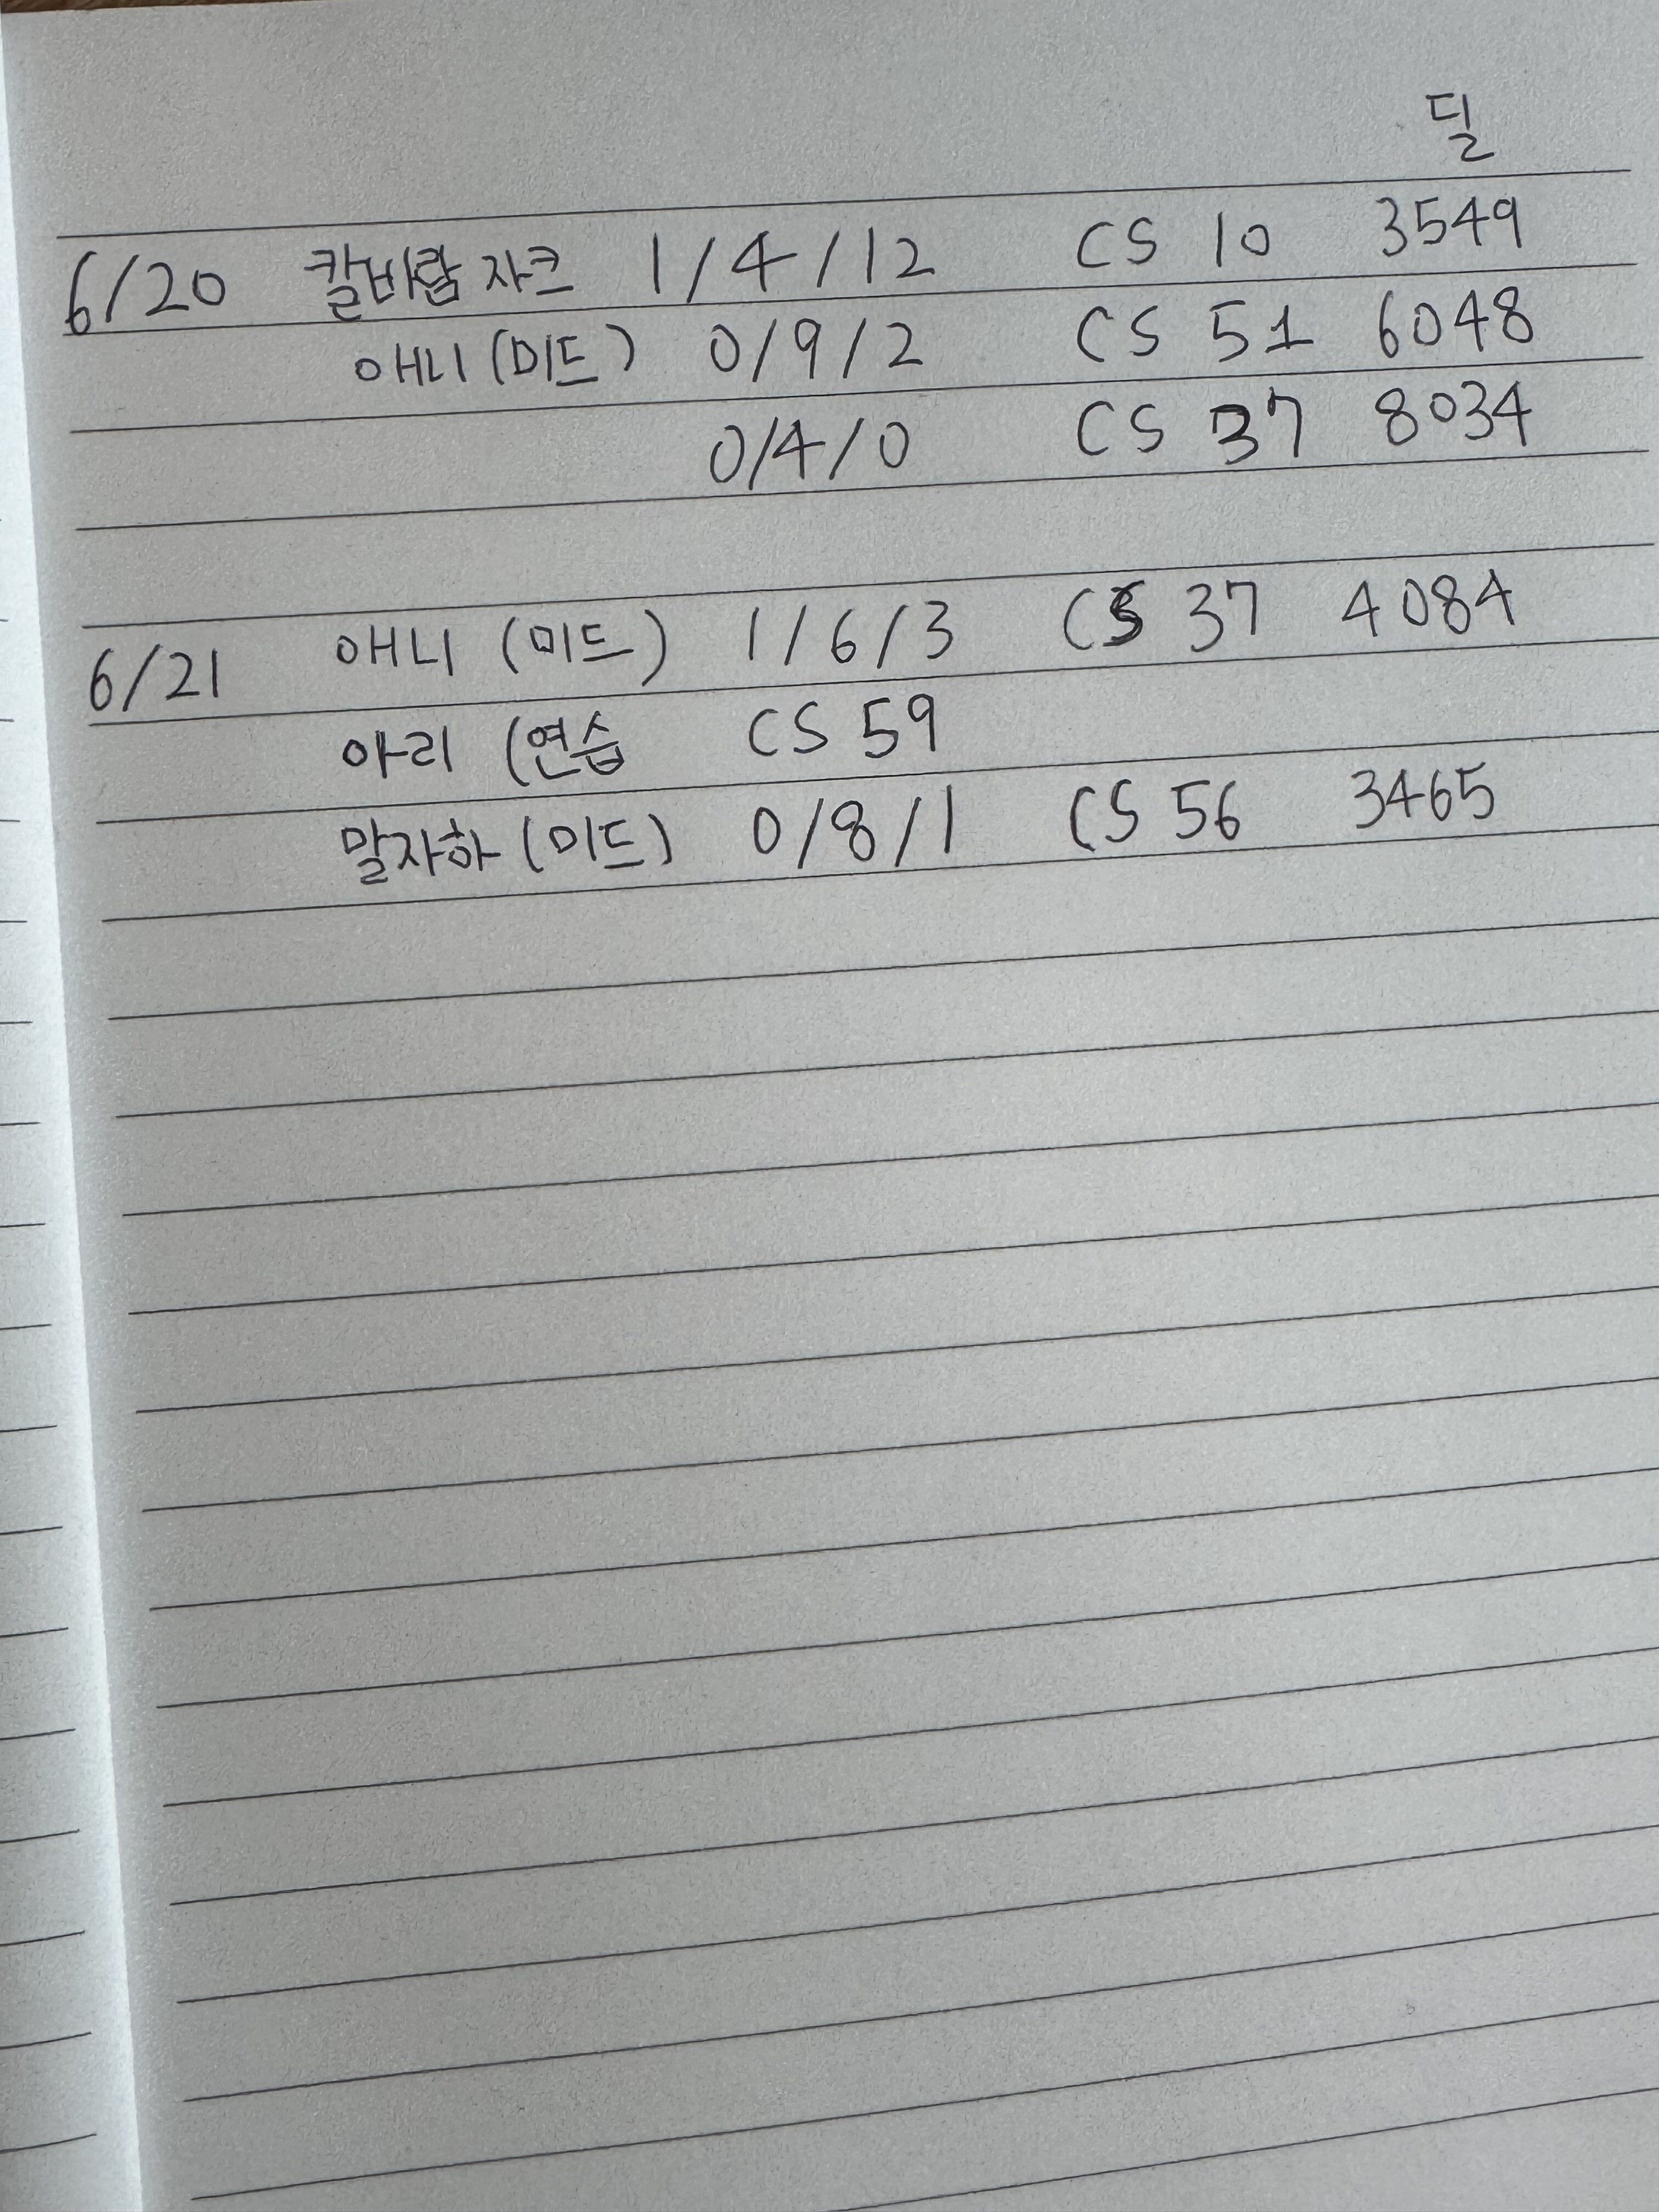 딜
6/20 칼바람 자크 1/4/12 CS 10 3549
애니 (미드) 0/9/2 CS 51 6048
0/4/0 CS 37 8034
6/21 애니 (미드) 1/6/3 CS 37 4084
아리 (연습 CS 59
말자하 (미드) 0/8/1 CS 56 3465